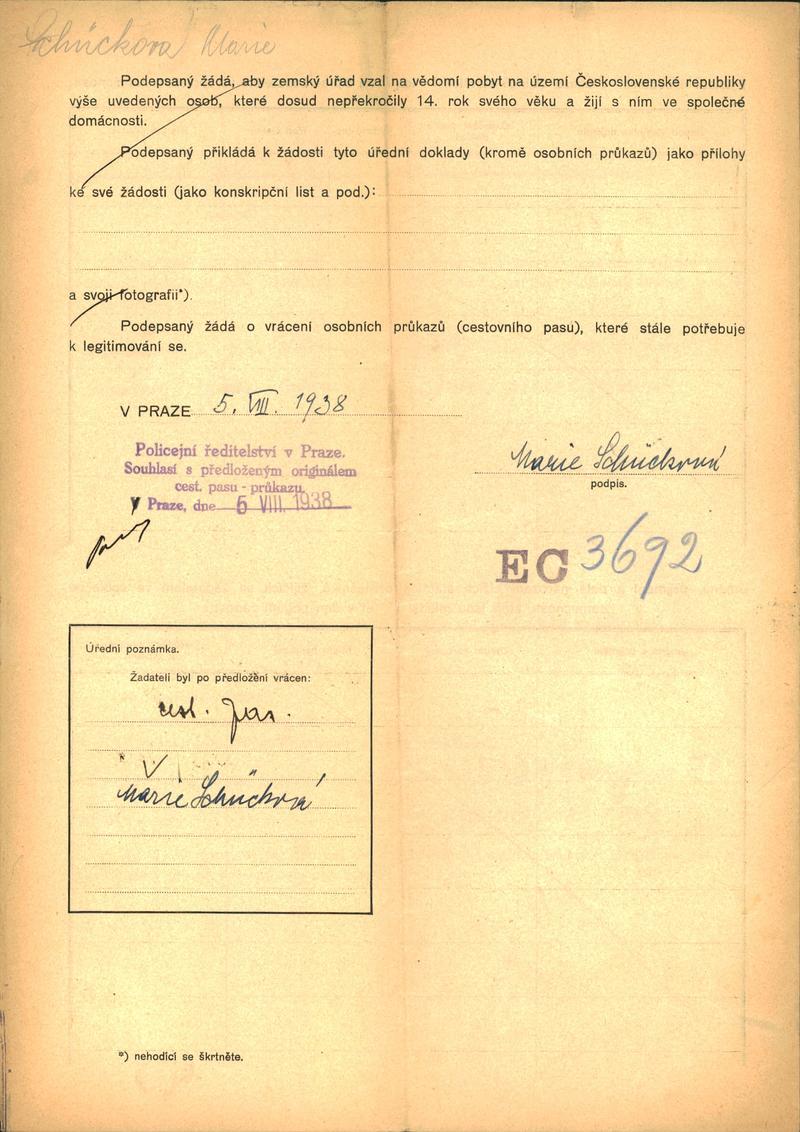 Schücková Marie
Podepsaný žádá, aby zemský úřad vzal na vědomí pobyt na území Československé republiky
výše uvedených osob, které dosud nepřekročily 14. rok svého věku a žijí s ním ve společné
domácnosti.
Podepsaný přikládá k žádosti tyto úřední doklady (kromě osobních průkazů) jako přílohy
ke své žádosti (jako konskripční list a pod.):
a svoji fotografii*).
Podepsaný žádá o vrácení osobních průkazů (cestovního pasu), které stále potřebuje
k legitimování se.
V PRAZE 5. VIII. 1938
Policejní ředitelství v Praze.
Souhlasí s předloženým originálem
cest. pasu - průkazu.
V Praze, dne 5 VIII. 1938
Marie Schücková
podpis.
EC 3692
Úřední poznámka.
Žadateli byl po předložení vrácen:
cest. pas.
Marie Schücková
*) nehodící se škrtněte.